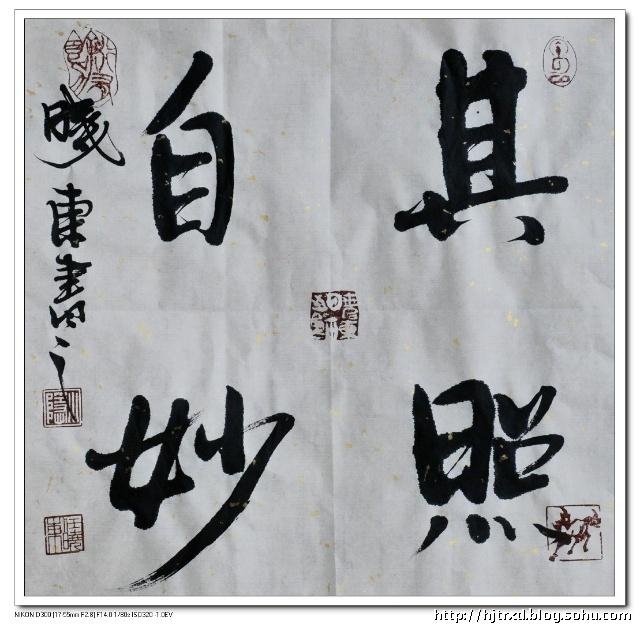 其照
自妙
晓東書
NIKON D300 [17-55mm F2.8] F14.0 1/80s ISO320 -1.0EV
http://hjtrxd.blog.sohu.com